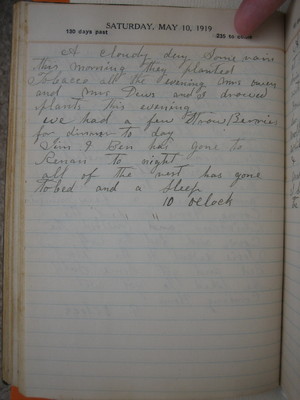 SATURDAY, MAY 10, 1919
130 days past 235 to come
A cloudy day Some rain
this morning they planted
Tobacco all the evening Mrs
and Mrs Dews and I drawed
plants this evening
we had a few Straw Berries
for dinner to day
Jim & Ben has gone to
Renan to night
all of the rest has gone
to bed and a sleep
10 Oclock
" "